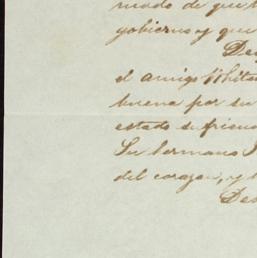 modo de que
gobierno y que
De
el amigo Whit
buena por su
estado sufrien
Su hermano
del corazon, y
Des